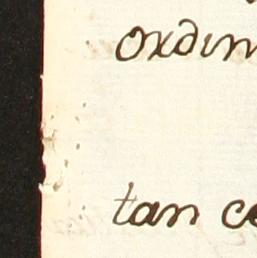 ordin
tan ce